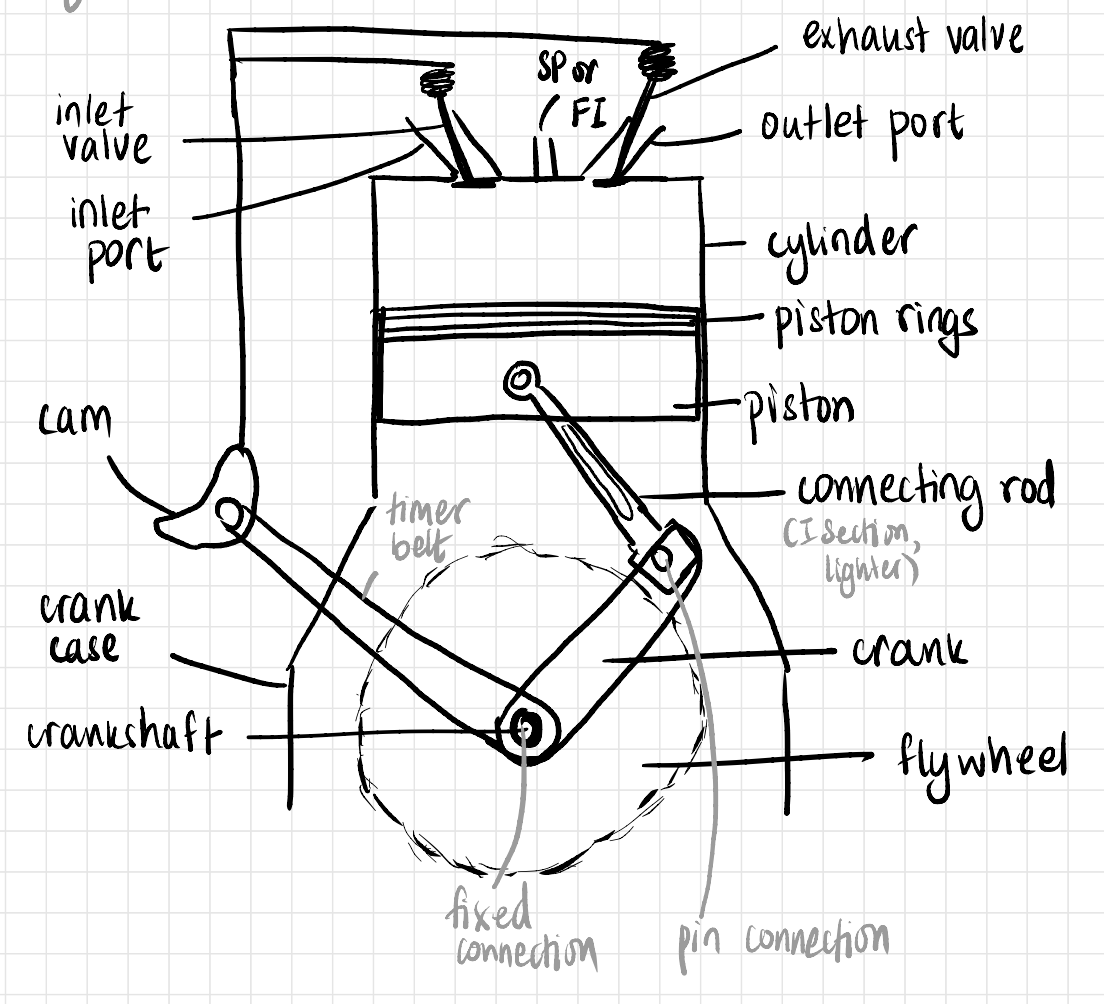 exhaust valve
SP or
FI
inlet
valve
outlet port
inlet
port
cylinder
piston rings
cam
piston
timer
belt
connecting rod
(I section,
lighter)
crank
case
crank
crankshaft
flywheel
fixed
connection
pin connection